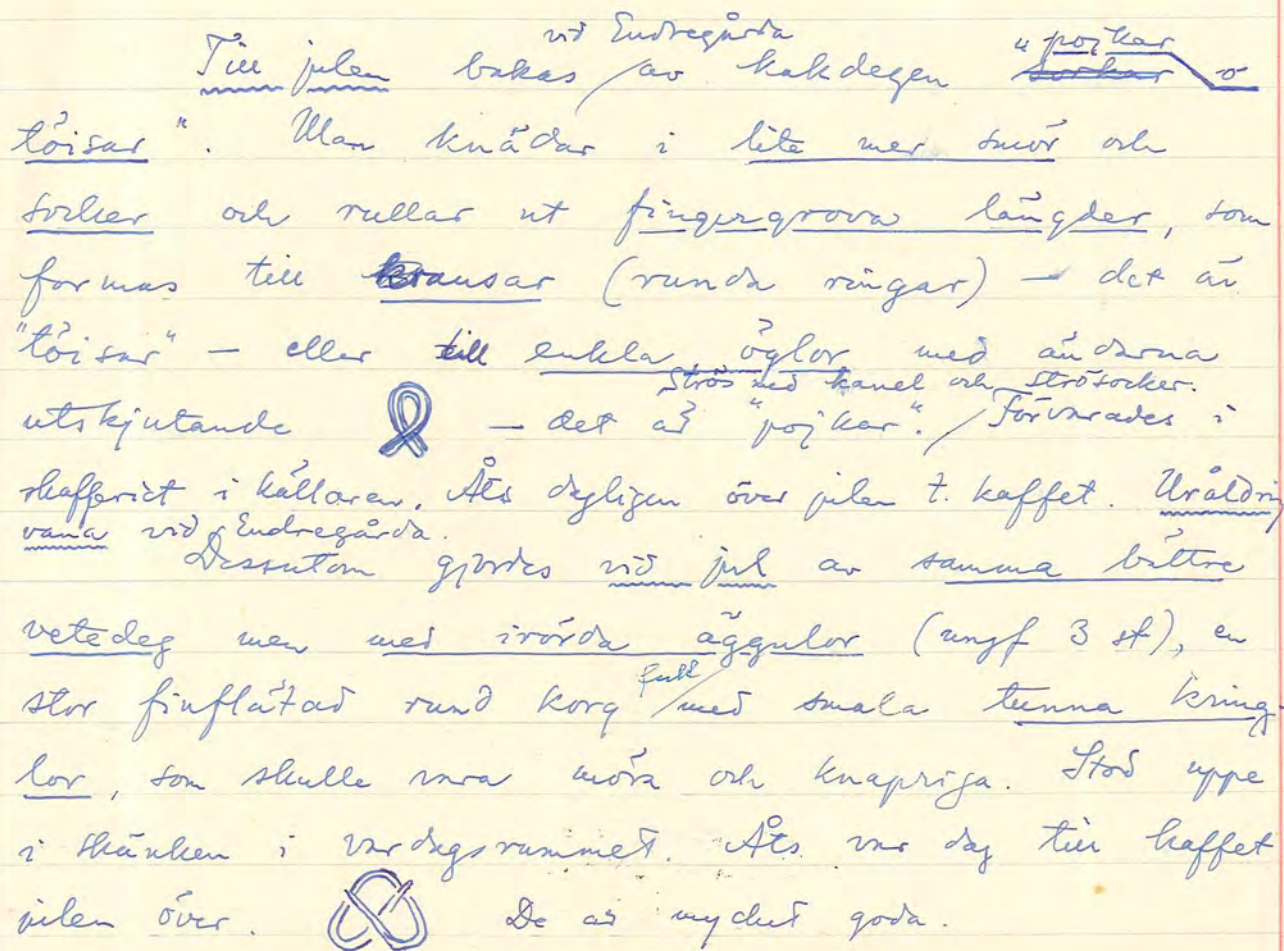 vid Endregårda
Till julen bakas av kakdegen "pojkar o
sorkar
töisar". Man knådar i lite mer smör och
socker och rullar ut fingergrova längder, som
formas till kransar (runda ringar) – det är
"töisar" – eller till enkla öglor med ändarna
Strös med kanel och strösocker.
utskjutande – det är "pojkar". Förvarades i
skafferiet i källaren. Åts dagligen över julen t. kaffet. Uråldrig
vana vid Endregårda.
Dessutom gjordes vid jul av samma bättre
vetedeg men med irörda äggulor (ungf 3 st), en
full
stor finflätad rund korg med smala tunna kring-
lor, som skulle vara möra och knapriga. Stod uppe
i skänken i vardagsrummet. Åts var dag till kaffet
julen över. De är mycket goda.